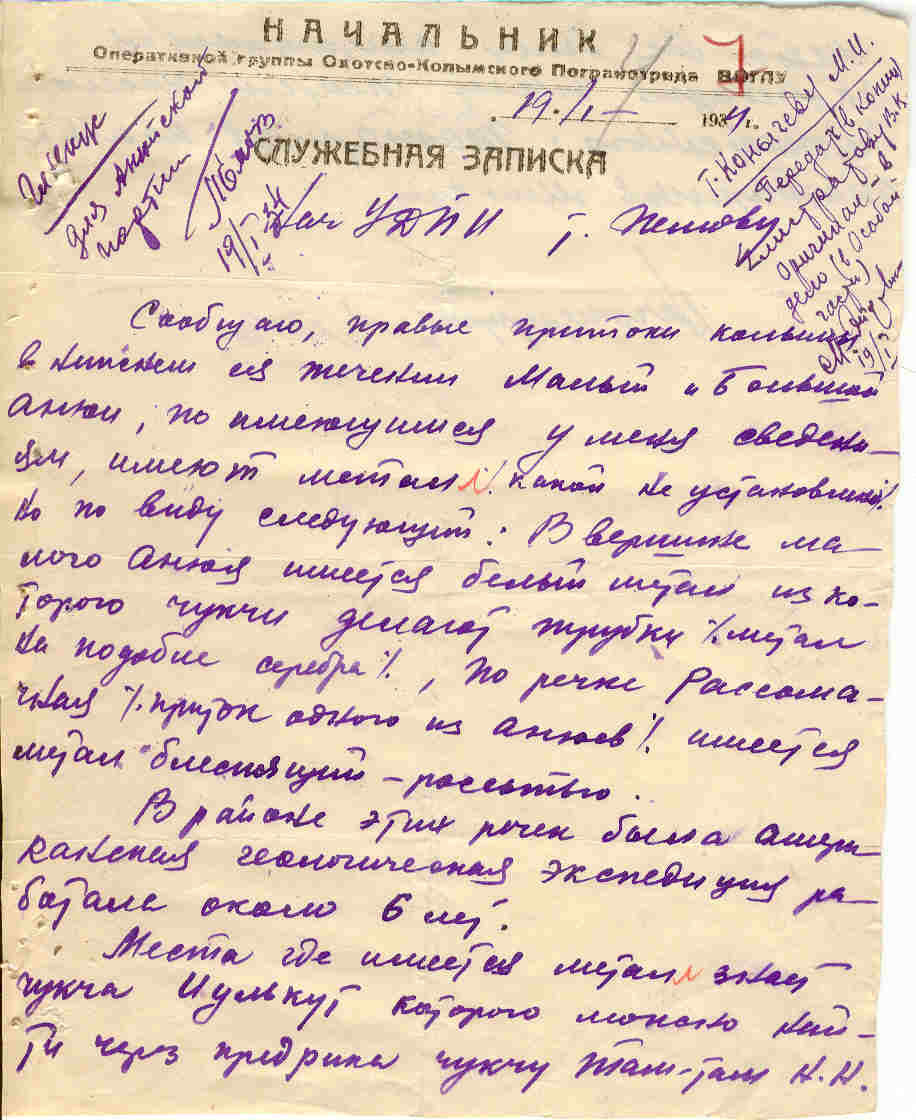 НАЧАЛЬНИК
Оперативной группы Охотско-Колымского Погранотряда ВОГПУ
7
19/I- 1934 г.
СЛУЖЕБНАЯ ЗАПИСКА
для Анюйской
партии
19/I 34
т. Конычеву М.И.
Передах (в копии)
Оригинал - в
дело (в Особой
части)
19/I
Нач УДПИ т.
Сообщаю, правые притоки колымы
в нижнем ея течении Малый и Большой
Анюи, по имеющимся у меня сведени-
ям, имеют металл. какой не установлено,
но по виду следующий: В вершине ма-
лого Анюя имеется белый метал из ко-
торого чукчи делают трубки /.метал
на подобие серебра/., по речке Рассома-
шная /.приток одного из анюев/. имеется
метал блестящий - россыпью.
В районе этих речек была амери
канская геологическая экспедиция ра-
ботала около 6 лет.
Места где имеется металл знает
чукча которого можно най-
ти через предрика чукчу Н.Н.